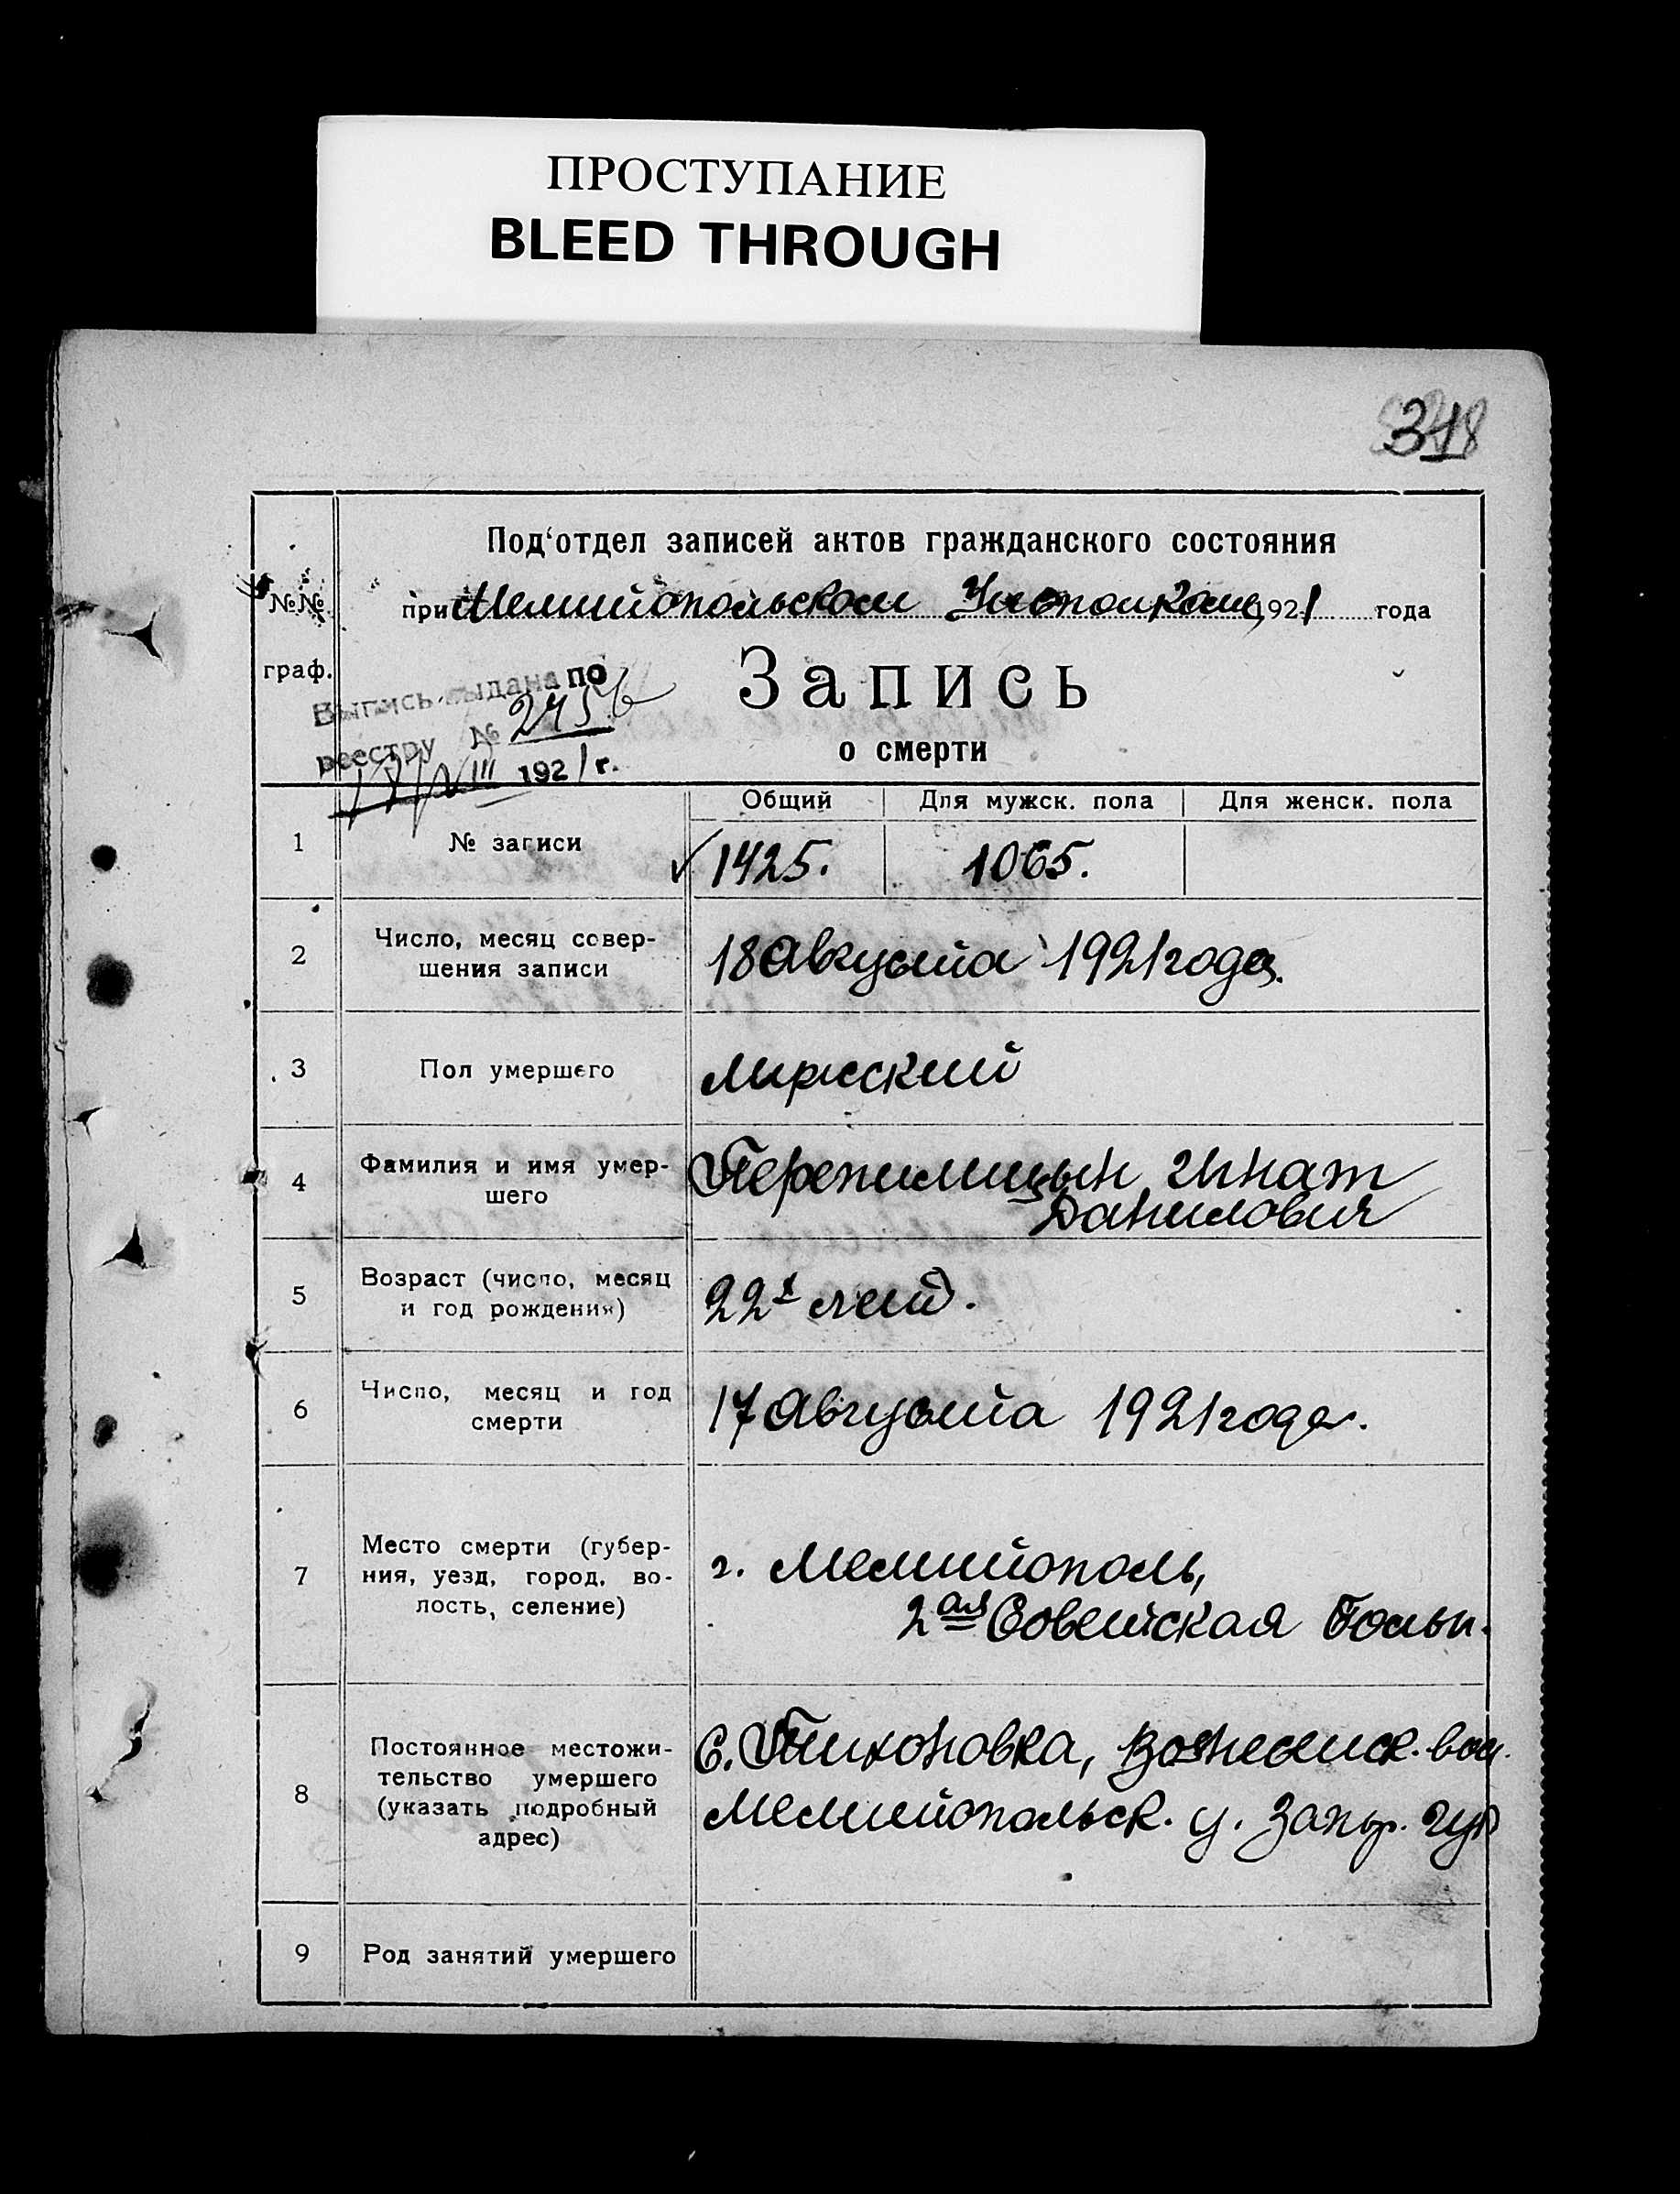 ПРОСТУПАНИЕ
BLEED THROUGH
318
Под‘отдел записей актов гражданского состояния
№№ граф.
при Мелитопольском Уисполкоме, 1921 года
Запись
о смерти
Выпись выдана по
реестру № 2456
18/VIII 1921 г.
Общий Для мужск. пола Для женск. пола
1 № записи 1425. 1065.
2 Число, месяц совер-
шения записи 18 Августа 1921 года.
3 Пол умершего мужской
4 Фамилия и имя умер-
шего Перепилицын Игнат
Данилович
5 Возраст (число, месяц
и год рождения) 22х лет.
6 Число, месяц и год
смерти 17 Августа 1921 года.
7 Место смерти (губер-
ния, уезд, город, во-
лость, селение) г. Мелитополь,
2ая Советская Больн.
8 Постоянное местожи-
тельство умершего
(указать подробный
адрес) С. Тихоновка, Вознесенск. вол.
Мелитопольск. у. Запор. губ
9 Род занятий умершего